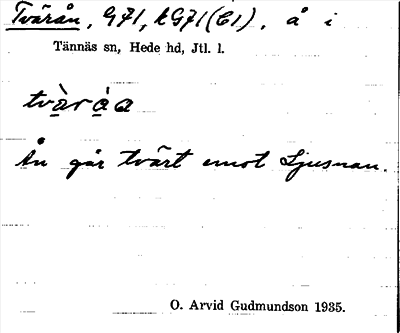 Tvärån, G71, kG71(C1), å i
Tännäs sn, Hede hd, Jtl. l.
tvä̀ràa
Ån går tvärt emot Ljusnan.
O. Arvid Gudmundson 1935.